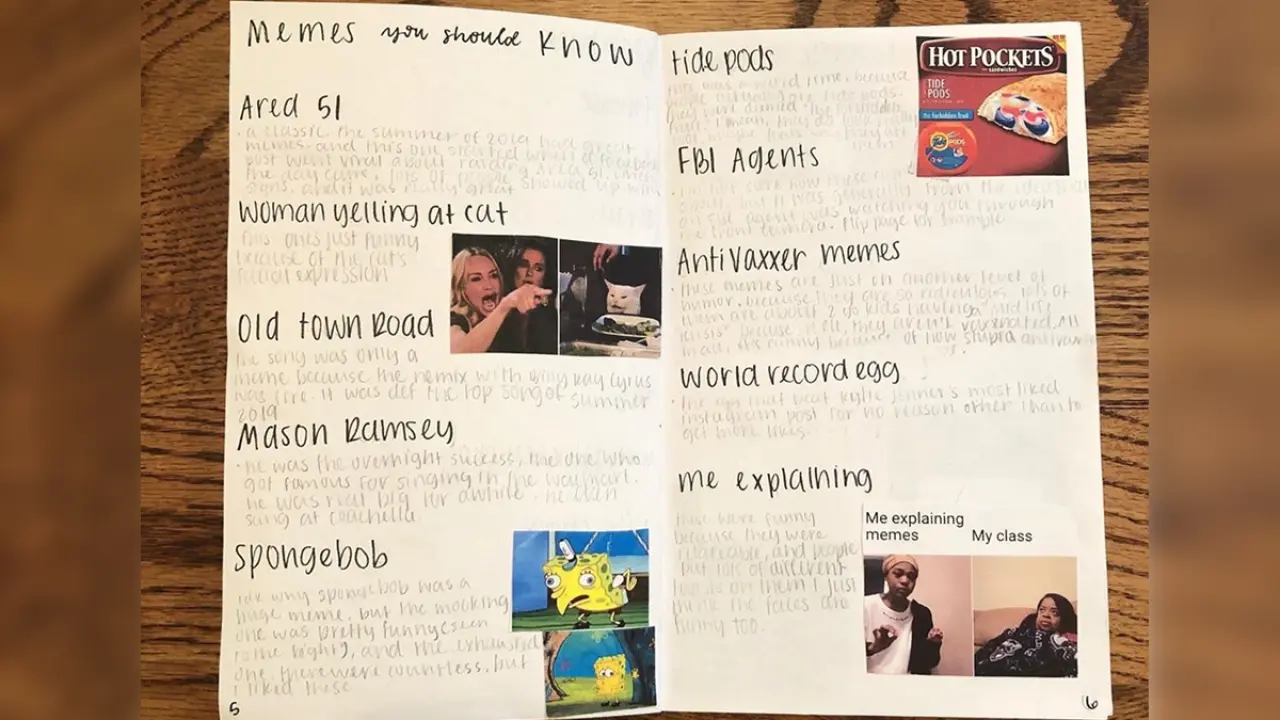 Memes you should know
Area 51
• a classic. the summer of 2019 had great
memes, and this one started when a facebook
post went viral about raiding area 51. when
the day came, lots of people showed up with
signs, and it was really great
woman yelling at cat
this ones just funny
because of the cat's
facial expression
Old town Road
the song was only a
meme because the remix with billy ray cyrus
was fire. it was def the top song of summer
2019
Mason Ramsey
• he was the overnight success, the one who
got famous for singing in the walmart.
he was real big for awhile. he even
sang at coachella
spongebob
idk why spongebob was a
huge meme, but the mocking
one was pretty funny (seen
to the right), and the exhausted
one. there were countless, but
I liked these
5
tide pods
because
tide pods.
they
HOT POCKETS
sandwiches
TIDE
PODS
the forbidden fruit
PODS
FBI Agents
from the idea that
an FBI agent was watching you through
the front camera. flip page for example
Antivaxxer memes
• these memes are just on another level of
humor, because they are so ridiculous. lots of
them are about 2 yo kids having a "mid life
crisis" because, well, they aren't vaccinated. All
in all, its funny because of how stupid
world record egg
• the egg that beat kylie jenner's most liked
instagram post for no reason other than to
get more likes.
me explaining
these were funny
because they were
relatable, and people
put lots of different
on them I just
think the faces are
funny too.
Me explaining
memes
My class
6